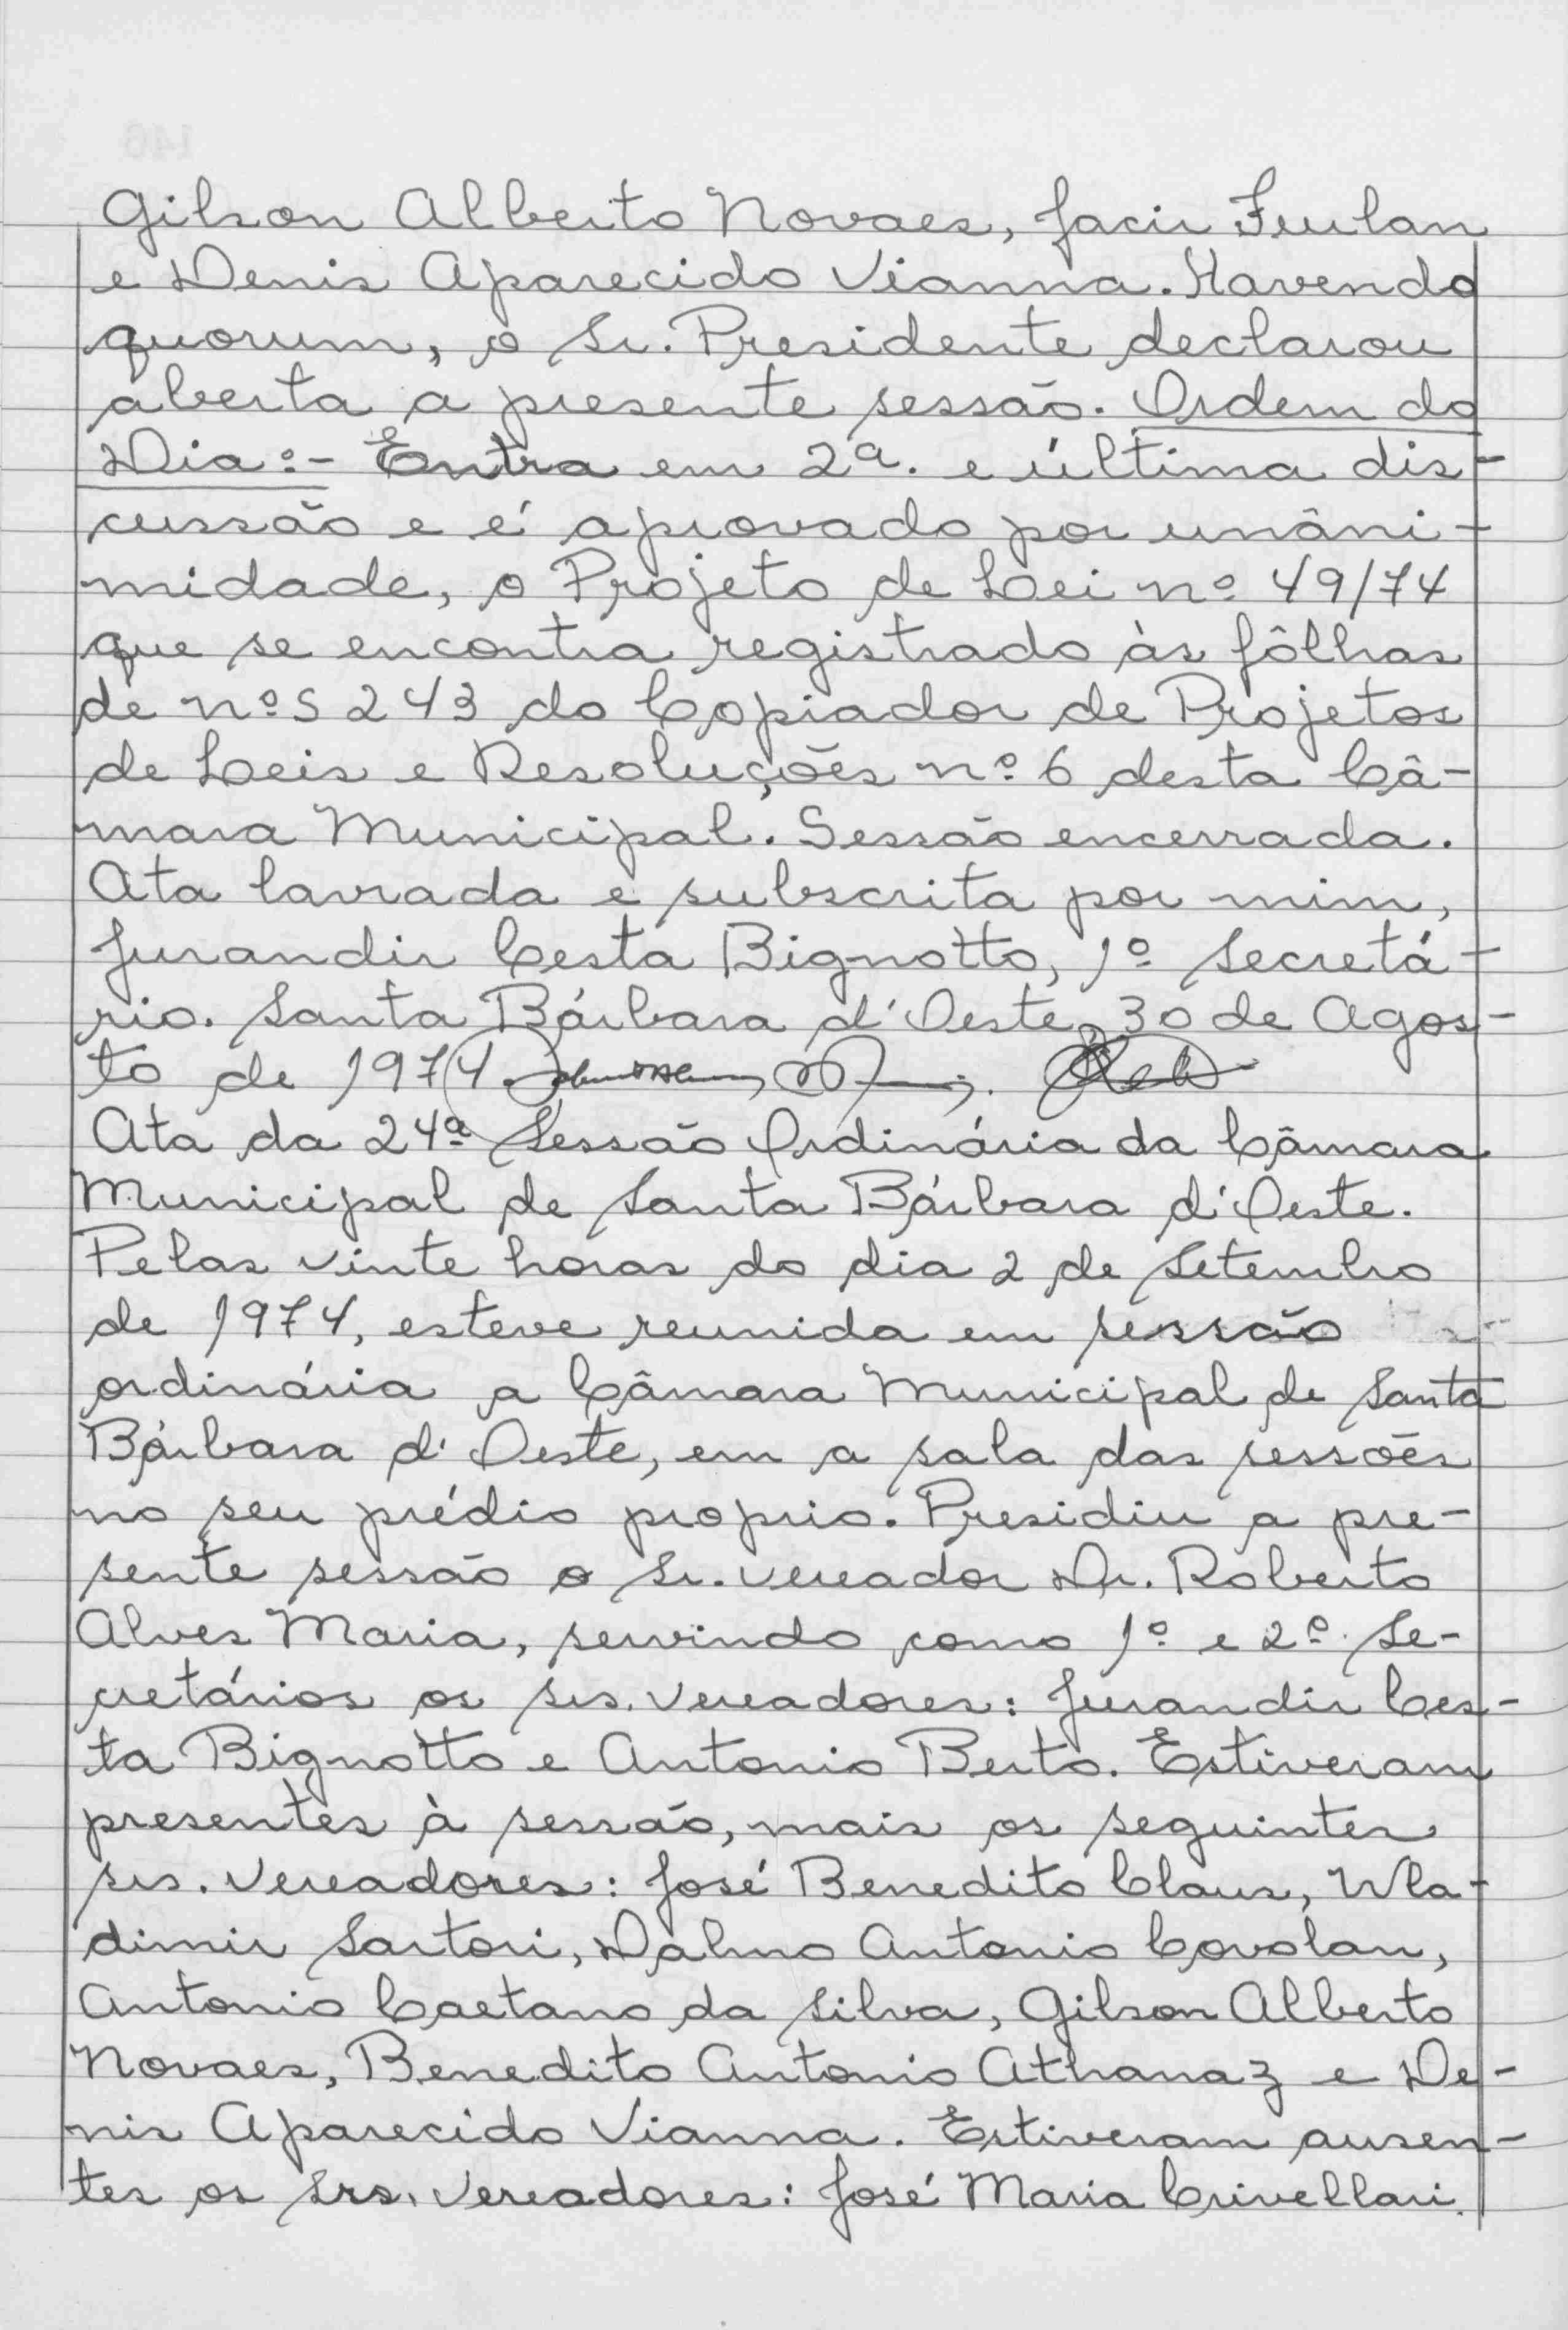 Gilson Alberto Novaes, Jacir Furlan
e Denis Aparecido Vianna. Havendo
quorum, o Sr. Presidente declarou
aberta a presente sessão. Ordem do
Dia:- Entra em 2a. e última dis-
cussão e é aprovado por unâni-
midade, o Projeto de Lei nº 49/74
que se encontra registrado às fôlhas
de nºs 243 do Copiador de Projetos
de Leis e Resoluções nº 6 desta Câ-
mara Municipal. Sessão encerrada.
Ata lavrada e subscrita por mim,
Jurandir Cesta Bignotto, 1º Secretá-
rio. Santa Bárbara d'Oeste, 30 de Agos-
to de 1974
Ata da 24ª Sessão Ordinária da Câmara
Municipal de Santa Bárbara d'Oeste.
Pelas vinte horas do dia 2 de Setembro
de 1974, esteve reunida em sessão
ordinária a Câmara Municipal de Santa
Bárbara d'Oeste, em a sala das sessões
no seu prédio proprio. Presidiu a pre-
sente sessão o Sr. vereador Dr. Roberto
Alves Maria, servindo como 1º e 2º Se-
cretários os srs. vereadores: Jurandir Ces-
ta Bignotto e Antonio Berto. Estiveram
presentes à sessão, mais os seguintes
srs. vereadores: José Benedito Claus, Wla-
dimir Sartori, Dalmo Antonio Covolan,
Antonio Caetano da Silva, Gilson Alberto
Novaes, Benedito Antonio Athanaz e De-
nis Aparecido Vianna. Estiveram ausen-
tes os Srs. Vereadores: José Maria Crivellari.